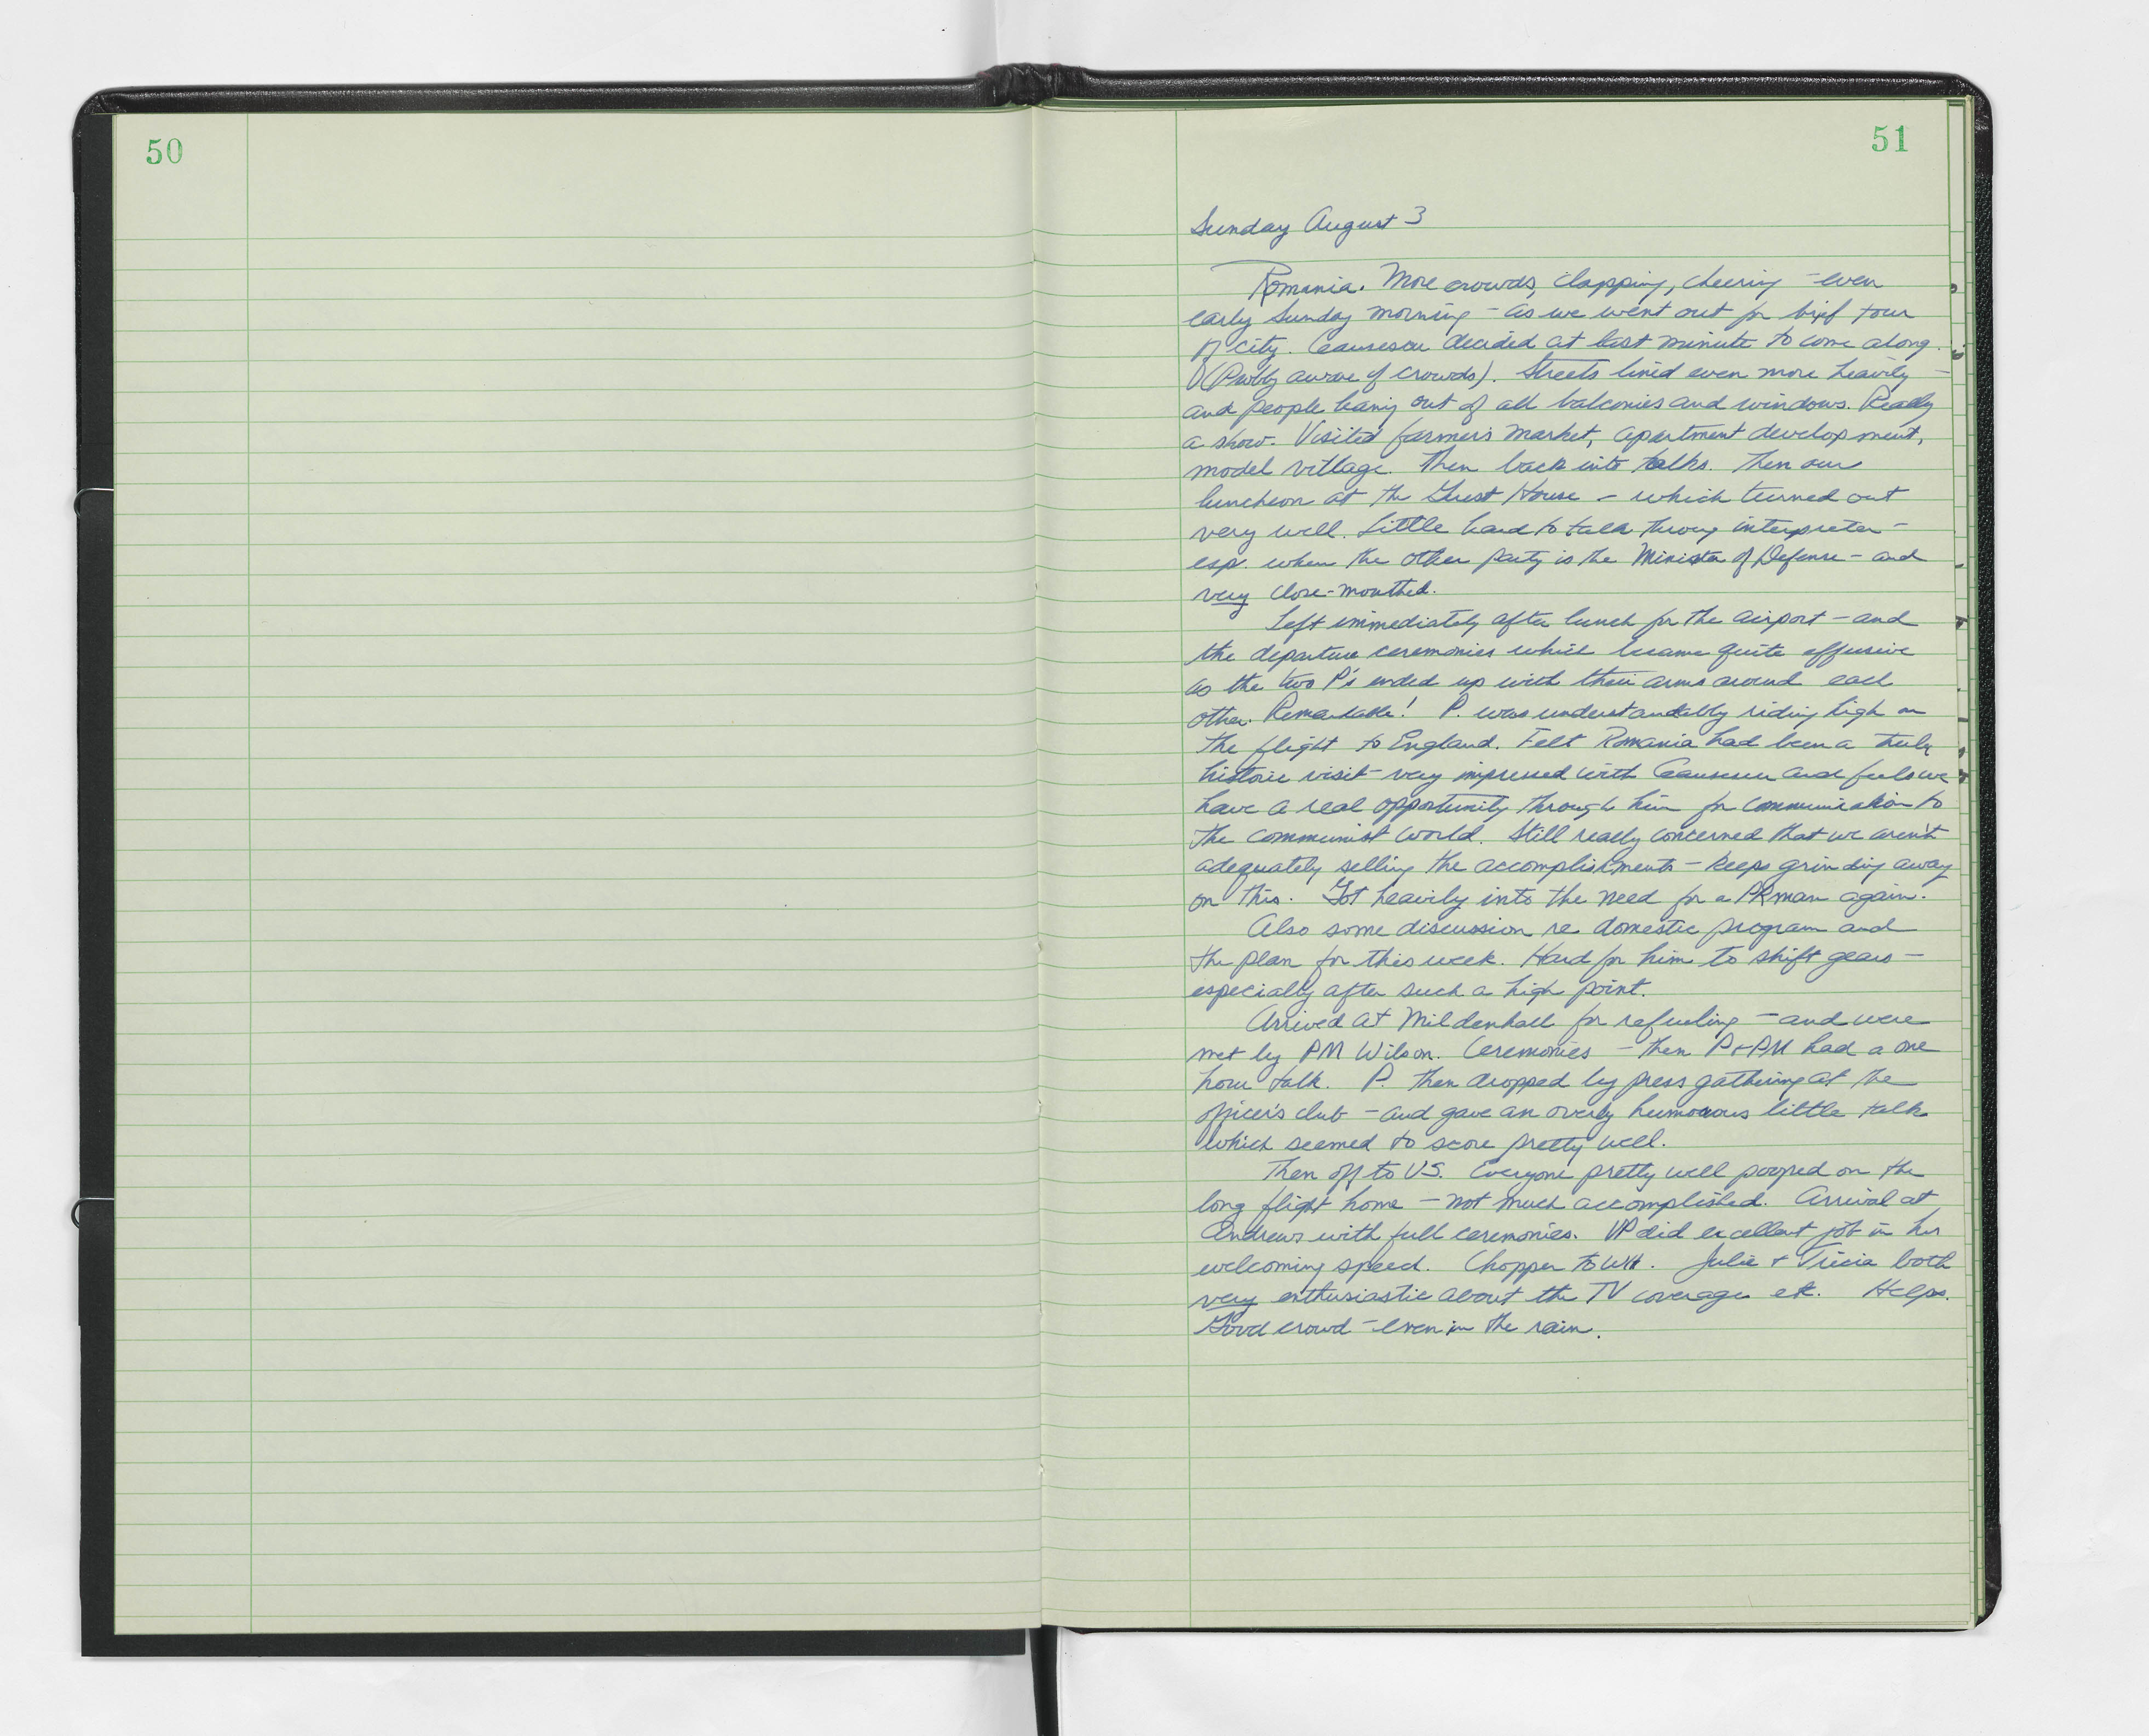 50
51
Sunday August 3
Romania. More crowds, clapping, cheering - even
early Sunday morning - as we went out for brief tour
of city. Ceausescu decided at last minute to come along.
(Probly aware of crowds). Streets lined even more heavily -
and people hanging out of all balconies and windows. Really
a show. Visited farmer's market, apartment development,
model village. Then back into talks. Then our
luncheon at the Guest House - which turned out
very well. Little hard to talk through interpreter -
esp. when the other party is the Minister of Defense - and
very close-mouthed.
Left immediately after lunch for the airport - and
the departure ceremonies which became quite effusive
as the two P's ended up with their arms around each
other. Remarkable! P. was understandably riding high on
the flight to England. Felt Romania had been a truly
historic visit - very impressed with Ceausescu and feels we
have a real opportunity through him for communication to
the communist world. Still really concerned that we aren't
adequately selling the accomplishments - keeps grinding away
on this. Got heavily into the need for a PR man again.
Also some discussion re domestic program and
the plan for this week. Hard for him to shift gears -
especially after such a high point.
Arrived at Mildenhall for refueling - and were
met by PM Wilson. Ceremonies - then P + PM had a one
hour talk. P. then dropped by press gathering at the
officer's club - and gave an overly humorous little talk
which seemed to score pretty well.
Then off to US. Everyone pretty well pooped on the
long flight home - not much accomplished. Arrival at
Andrews with full ceremonies. VP did excellent job in his
welcoming speech. Chopper to WH. Julie + Tricia both
very enthusiastic about the TV coverage etc. Helps.
Good crowd - even in the rain.